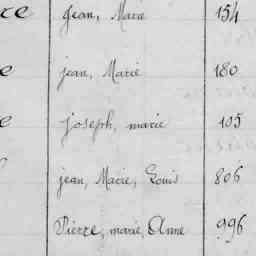 re Jean, Marie 154
e jean, Marie 180
e joseph, marie 105
jean, Marie, Louis 806
Pierre, marie, Anne 996